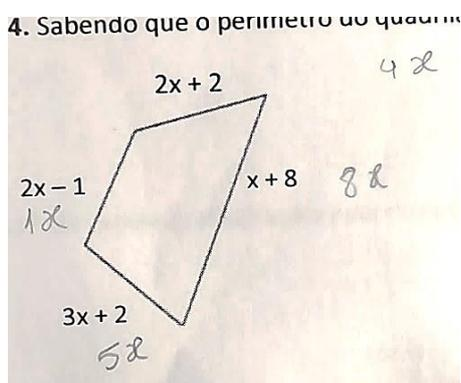 4. Sabendo que o perímetro do
4x
2x + 2
2x – 1
1x
x + 8
8x
3x + 2
5x